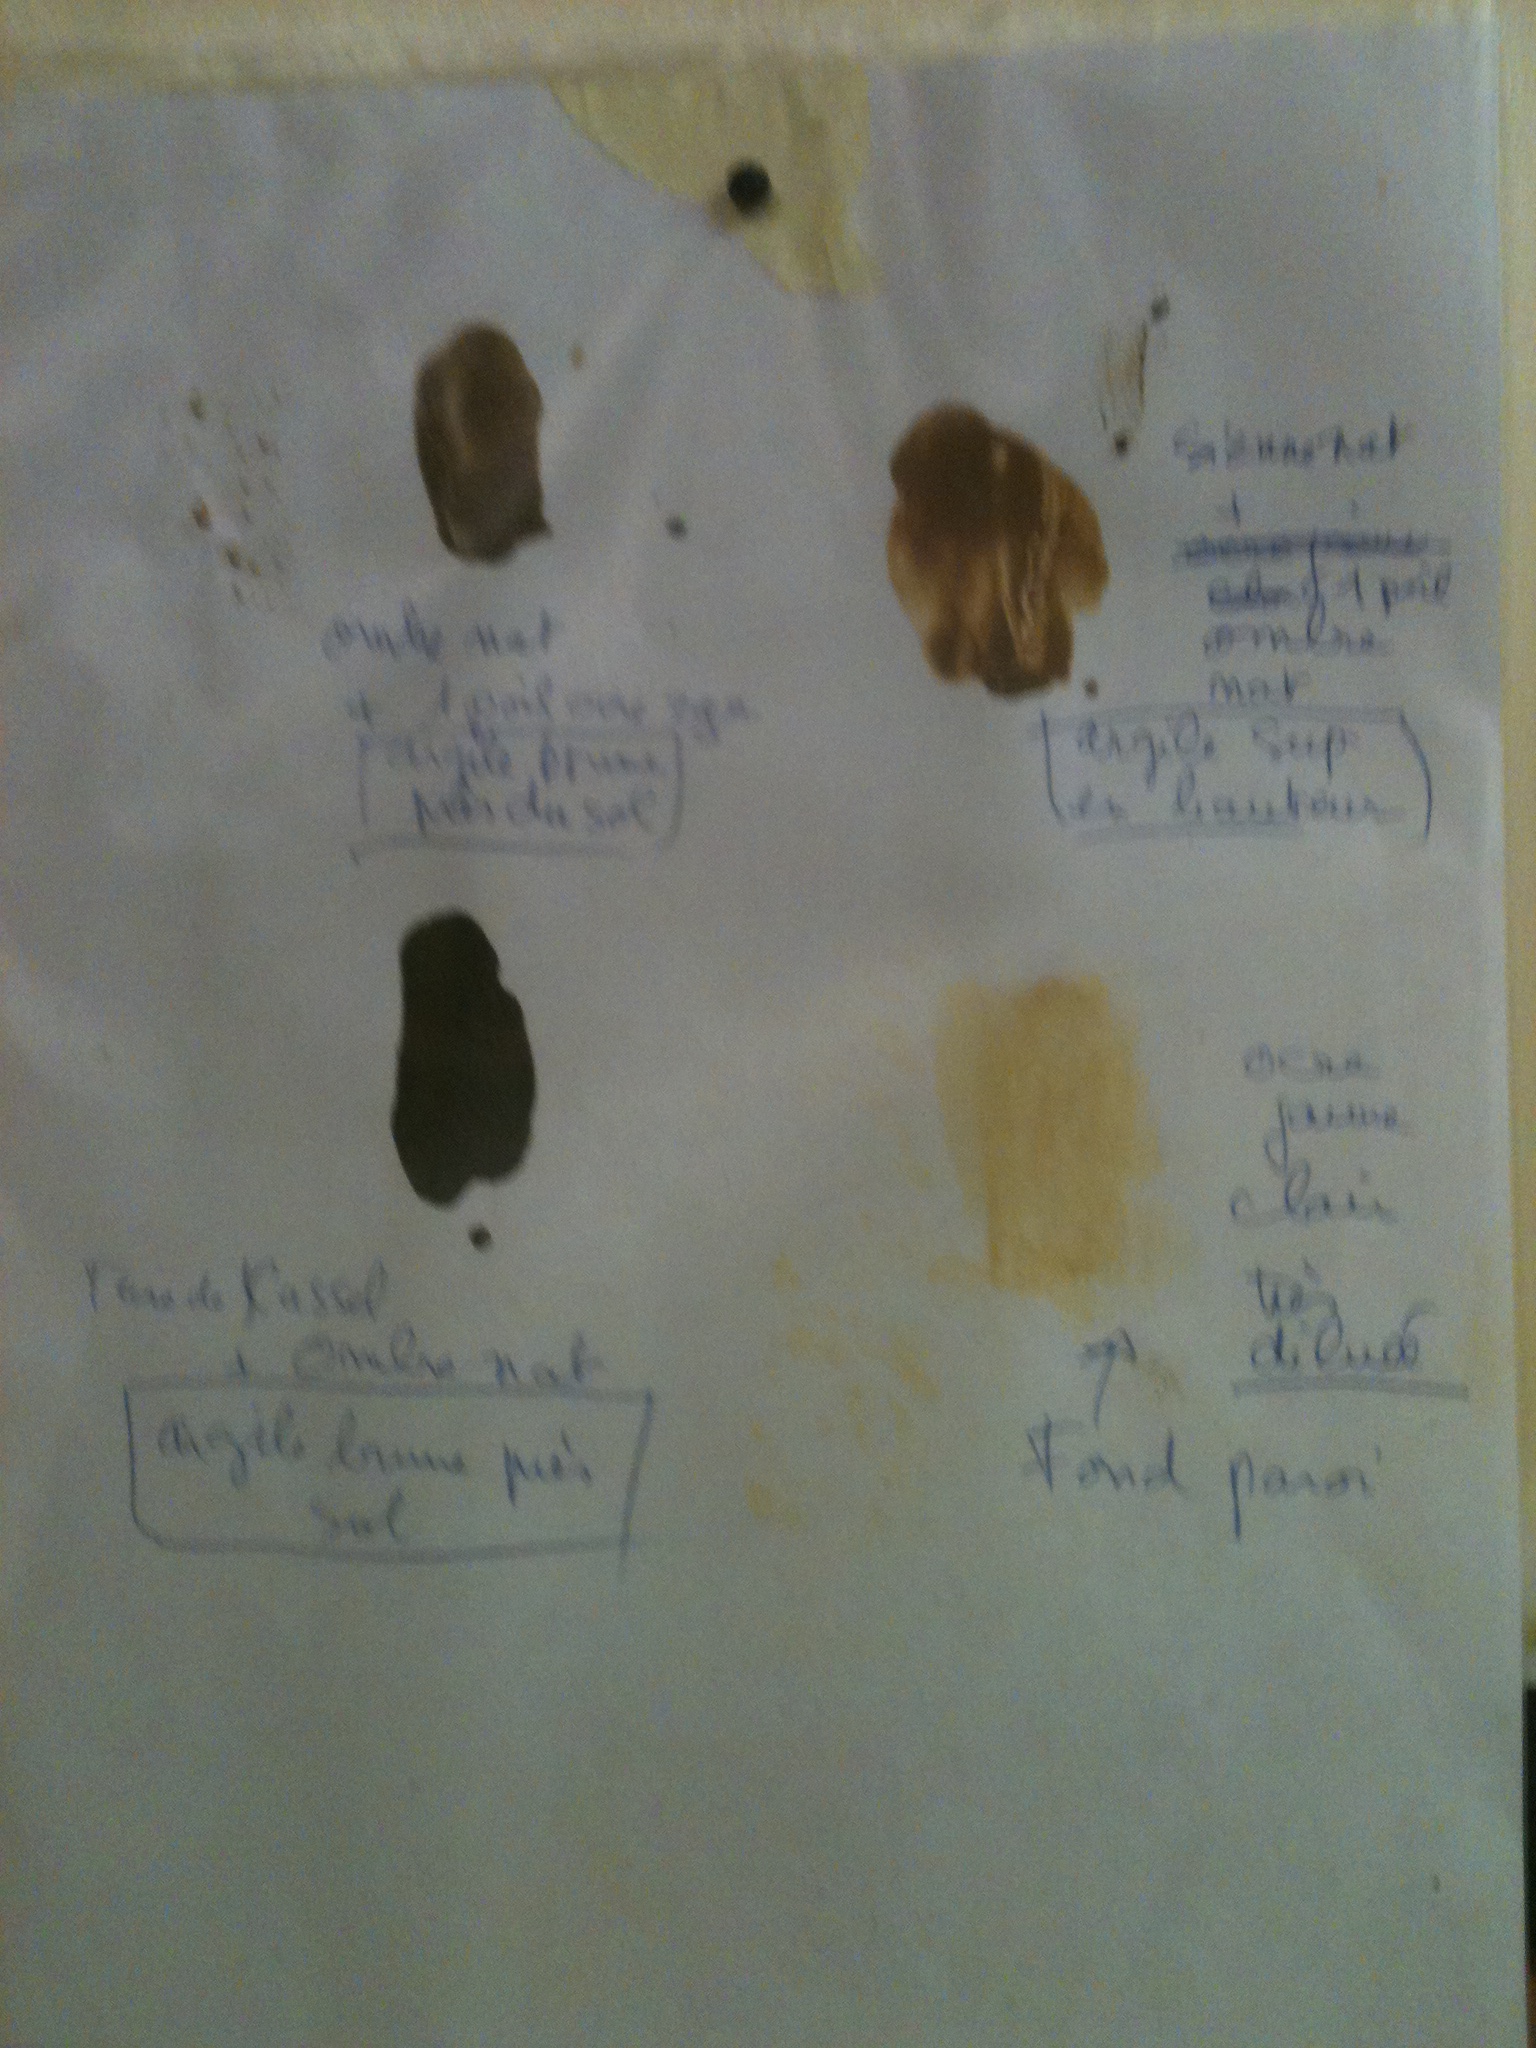 ombre nat
+ 1 poil ocre
argile brune
près du sol
sienne nat
+
1 poil
ombre
nat
argile sup
en hauteur
Terre de Kassel
+ ombre nat
argile brune près
sol
ocre
jaune
clair
très
dilué
Fond paroi